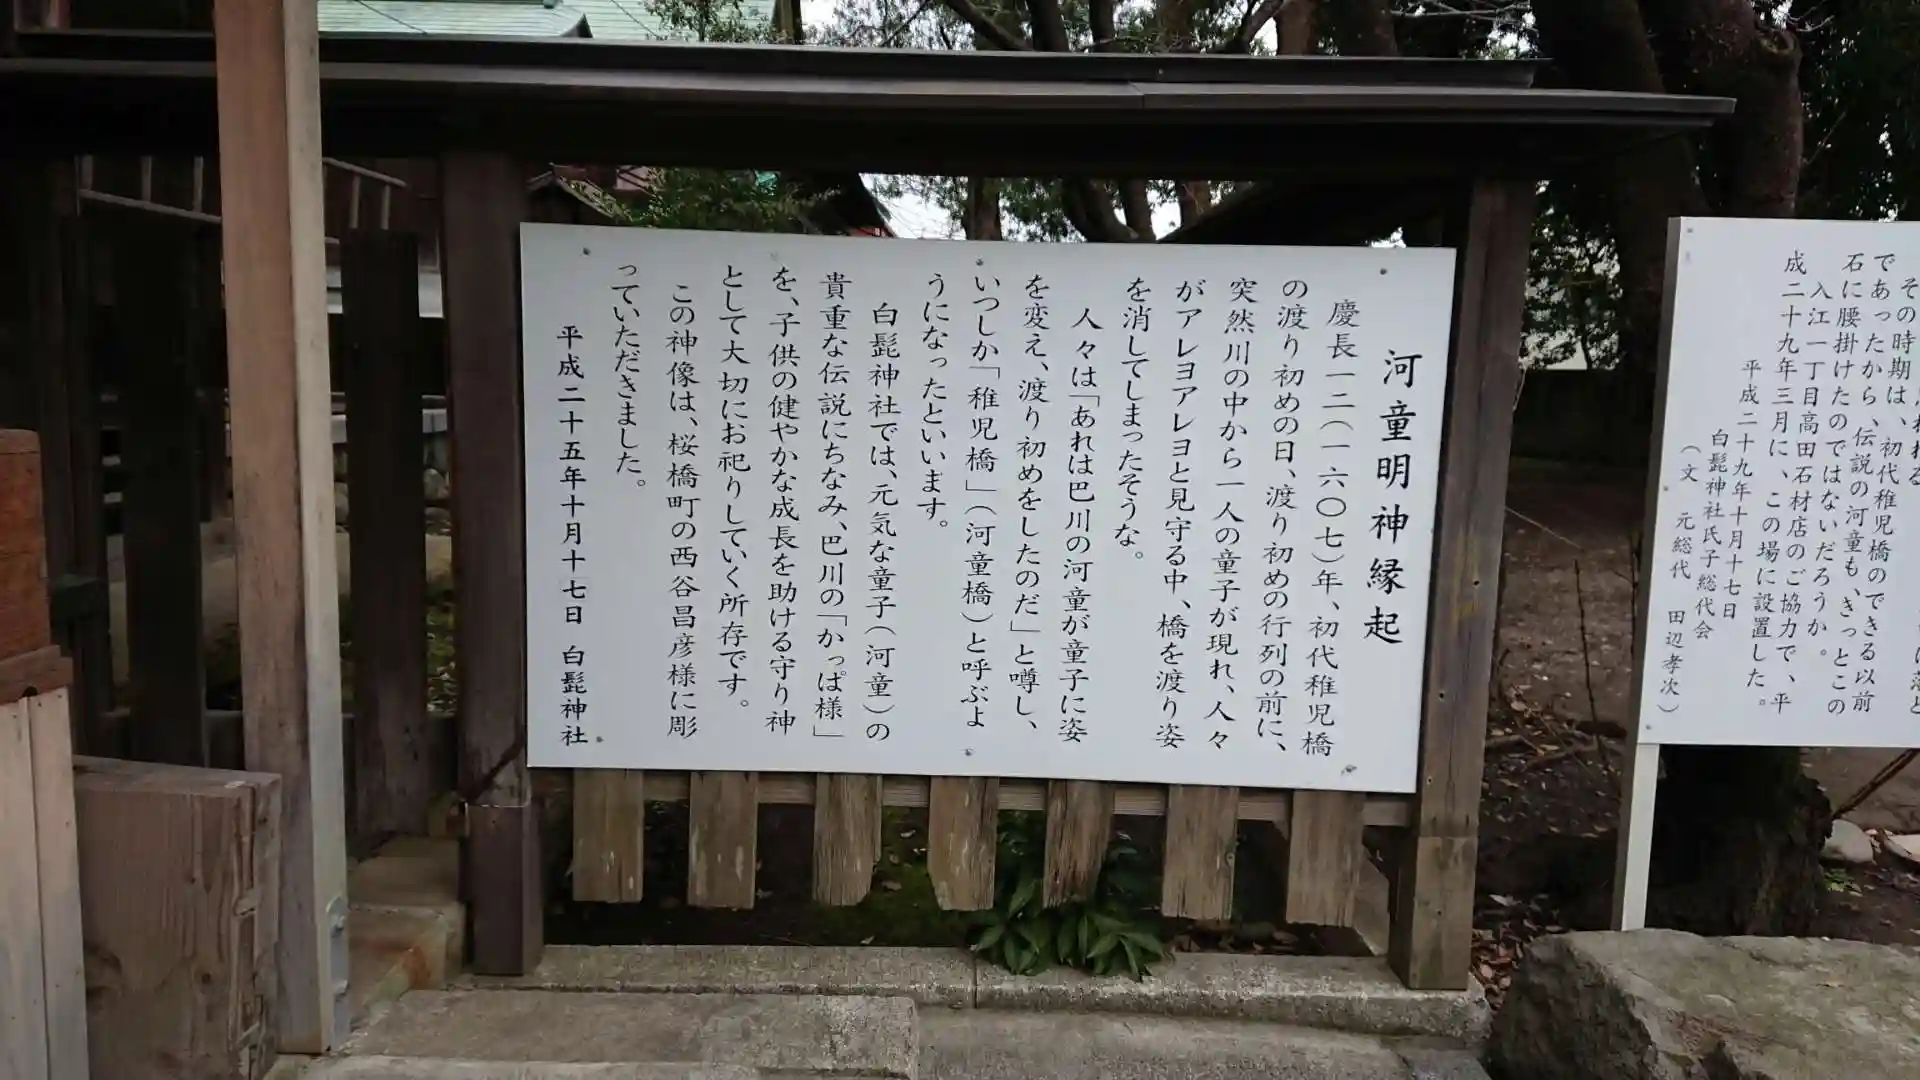 河童明神縁起
慶長一二(一六〇七)年、初代稚児橋
の渡り初めの日、渡り初めの行列の前に、
突然川の中から一人の童子が現れ、人々
がアレヨアレヨと見守る中、橋を渡り姿
を消してしまったそうな。
人々は「あれは巴川の河童が童子に姿
を変え、渡り初めをしたのだ」と噂し、
いつしか「稚児橋」(河童橋)と呼ぶよ
うになったといいます。
白髭神社では、元気な童子(河童)の
貴重な伝説にちなみ、巴川の「かっぱ様」
を、子供の健やかな成長を助ける守り神
として大切にお祀りしていく所存です。
この神像は、桜橋町の西谷昌彦様に彫
っていただきました。
平成二十五年十月十七日 白髭神社
その時期は、初代稚児橋のできる以前
であったから、伝説の河童も、きっとこの
石に腰掛けたのではないだろうか。
入江一丁目高田石材店のご協力で、平
成二十九年三月に、この場に設置した。
平成二十九年十月十七日
白髭神社氏子総代会
(文 元総代 田辺孝次)